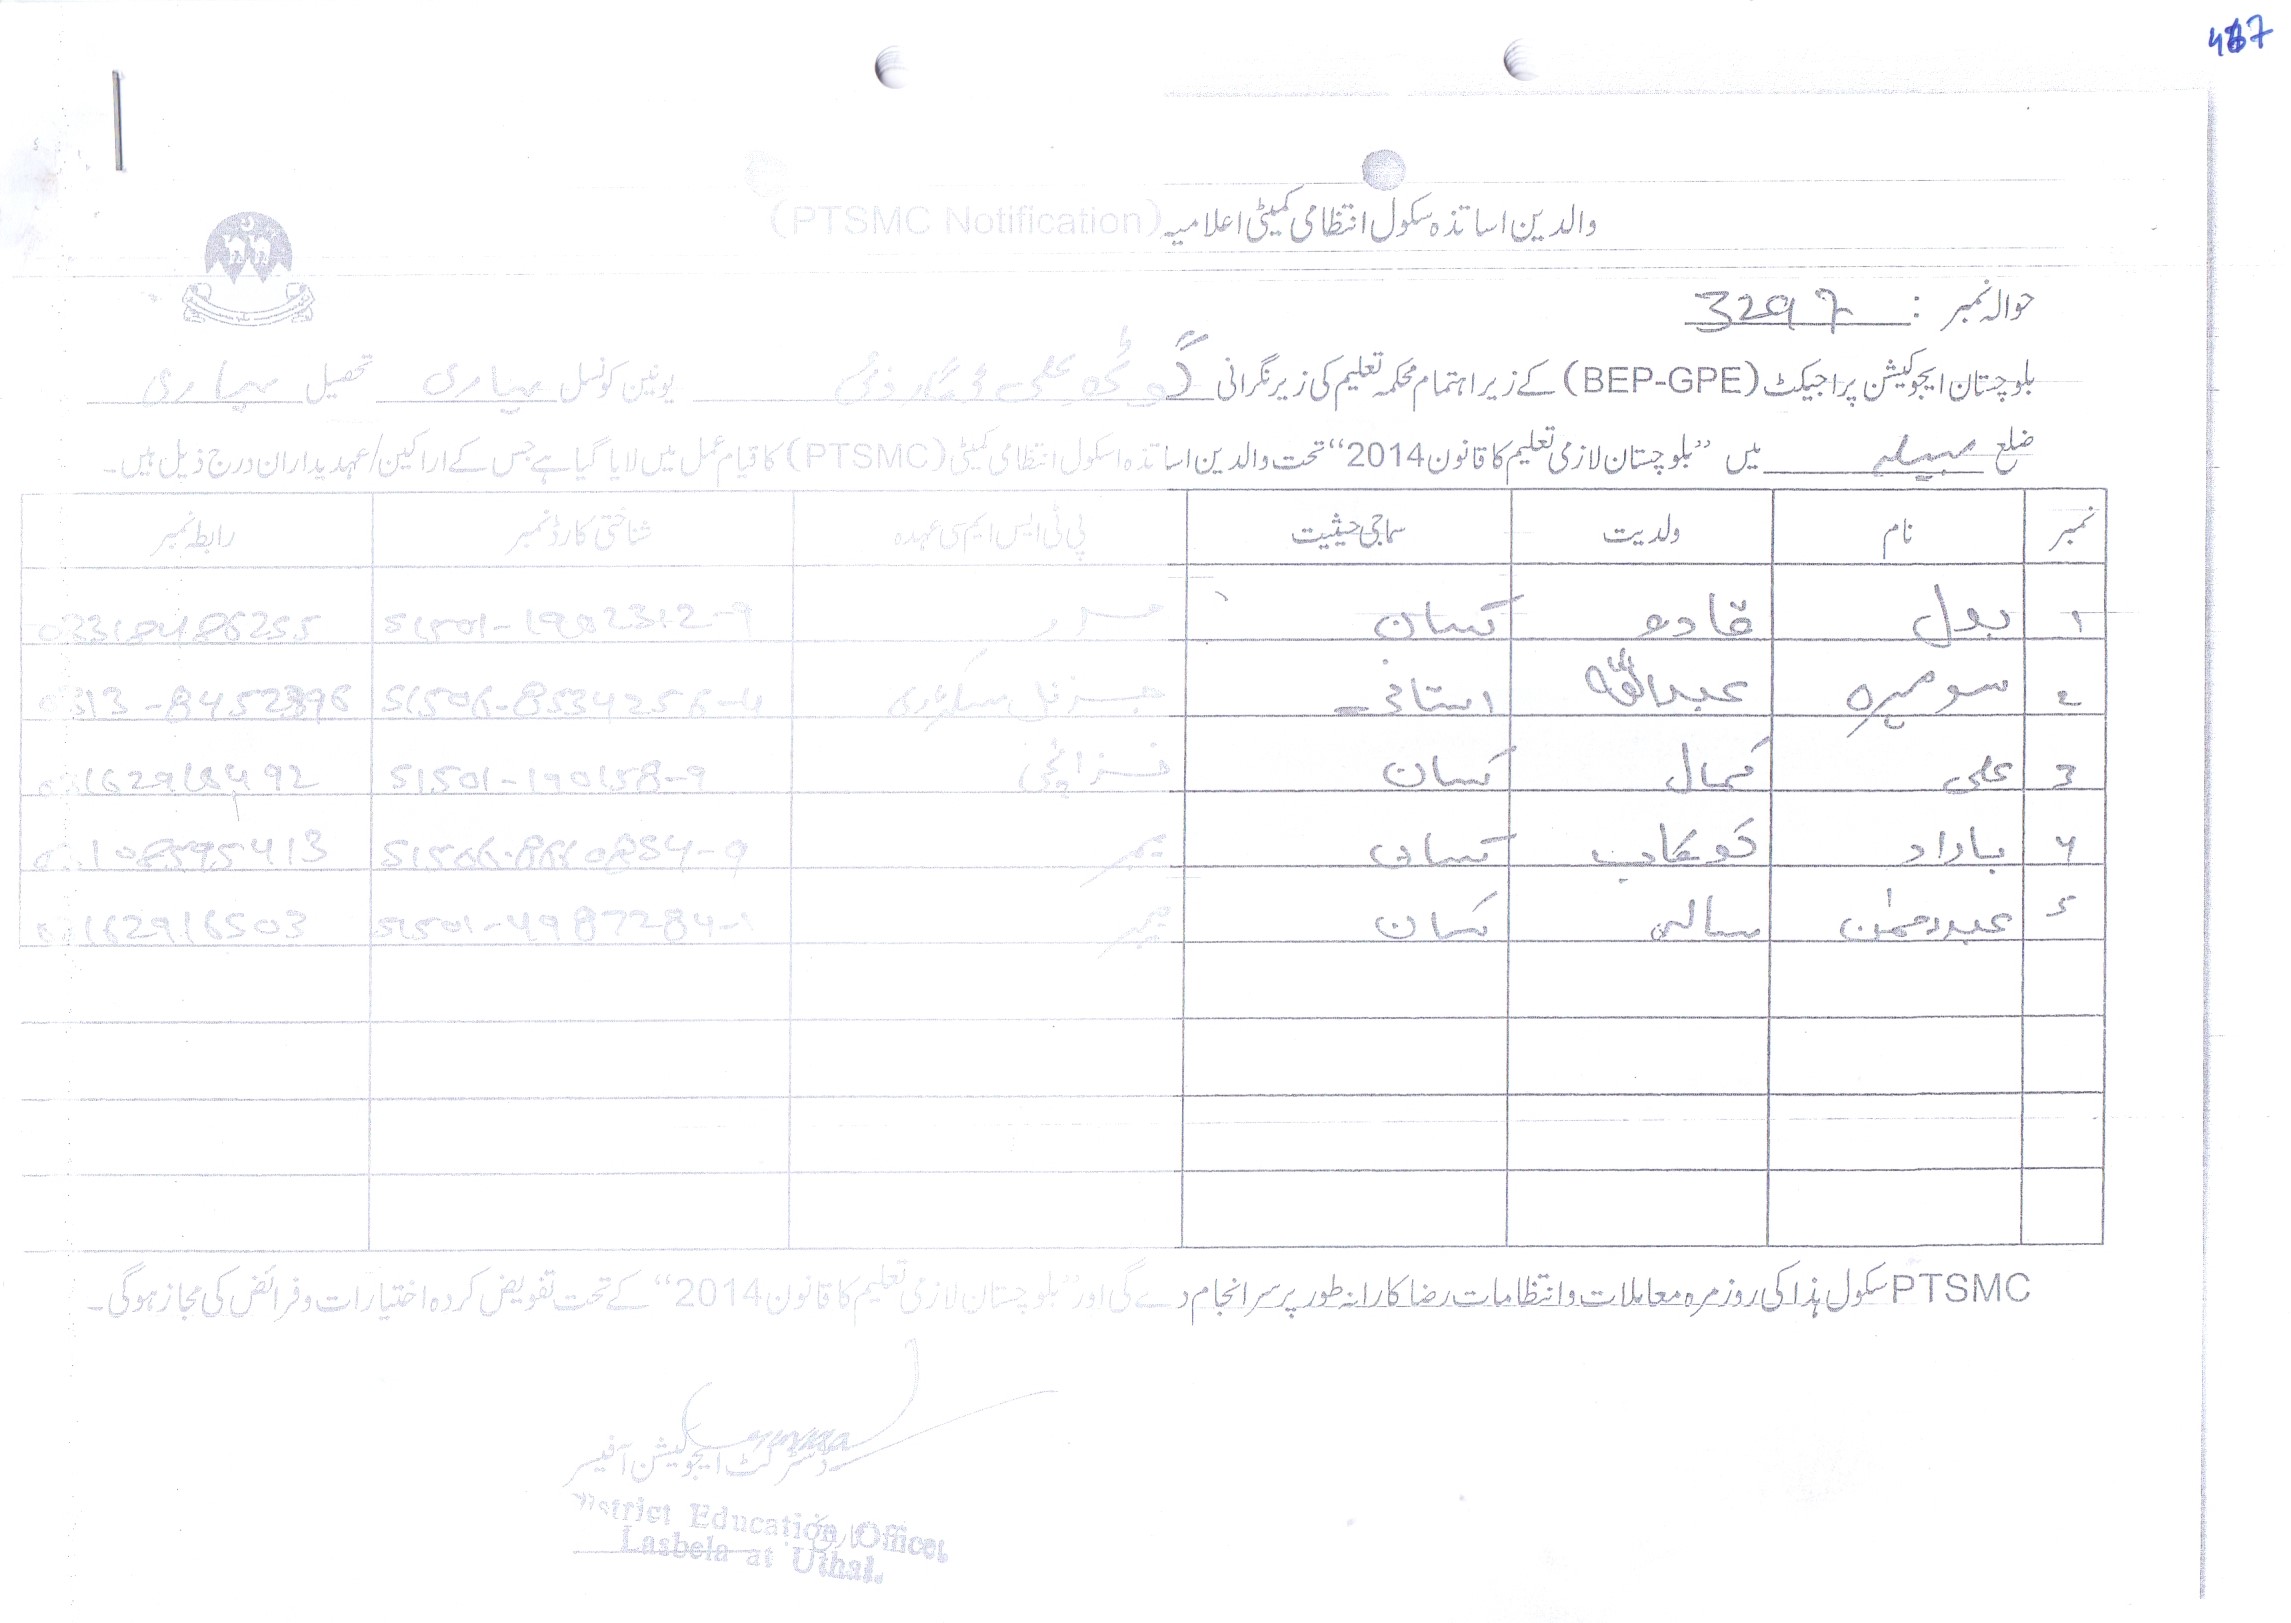 467
والدین اساتذہ سکول انتظامی کمیٹی اعلامیہ (PTSMC Notification)
حوالہ نمبر : 3297
بلوچستان ایجوکیشن پراجیکٹ (BEP-GPE) کے زیر اہتمام محکمہ تعلیم کی زیر نگرانی گوٹھ علی یونین کونسل لیاری تحصیل لیاری
ضلع لسبیلہ میں "بلوچستان لازمی تعلیم کا قانون 2014" تحت والدین اساتذہ اسکول انتظامی کمیٹی (PTSMC) کا قیام عمل میں لایا گیا ہے جس کے اراکین/عہدیداران درج ذیل ہیں۔
نمبر نام ولدیت سماجی حیثیت پی ٹی ایس ایم سی عہدہ شناختی کارڈ نمبر رابطہ نمبر
۱ قادو کسان
۲ سومیرہ عبداللہ استانی جنرل سیکرٹری 51506-8534256-4 0313-8452396
3 علی کمال کسان خزانچی 51501-190158-9
۴ کسان ممبر
۵ عبدرحمٰن کسان ممبر 51501-4987284-1
PTSMC سکول ہذا کی روزمرہ معاملات و انتظامات رضاکارانہ طور پر سرانجام دے گی اور "بلوچستان لازمی تعلیم کا قانون 2014" کے تحت تفویض کردہ اختیارات و فرائض کی مجاز ہوگی۔
ڈسٹرکٹ ایجوکیشن آفیسر
District Education Officer
Lasbela at Uthal.